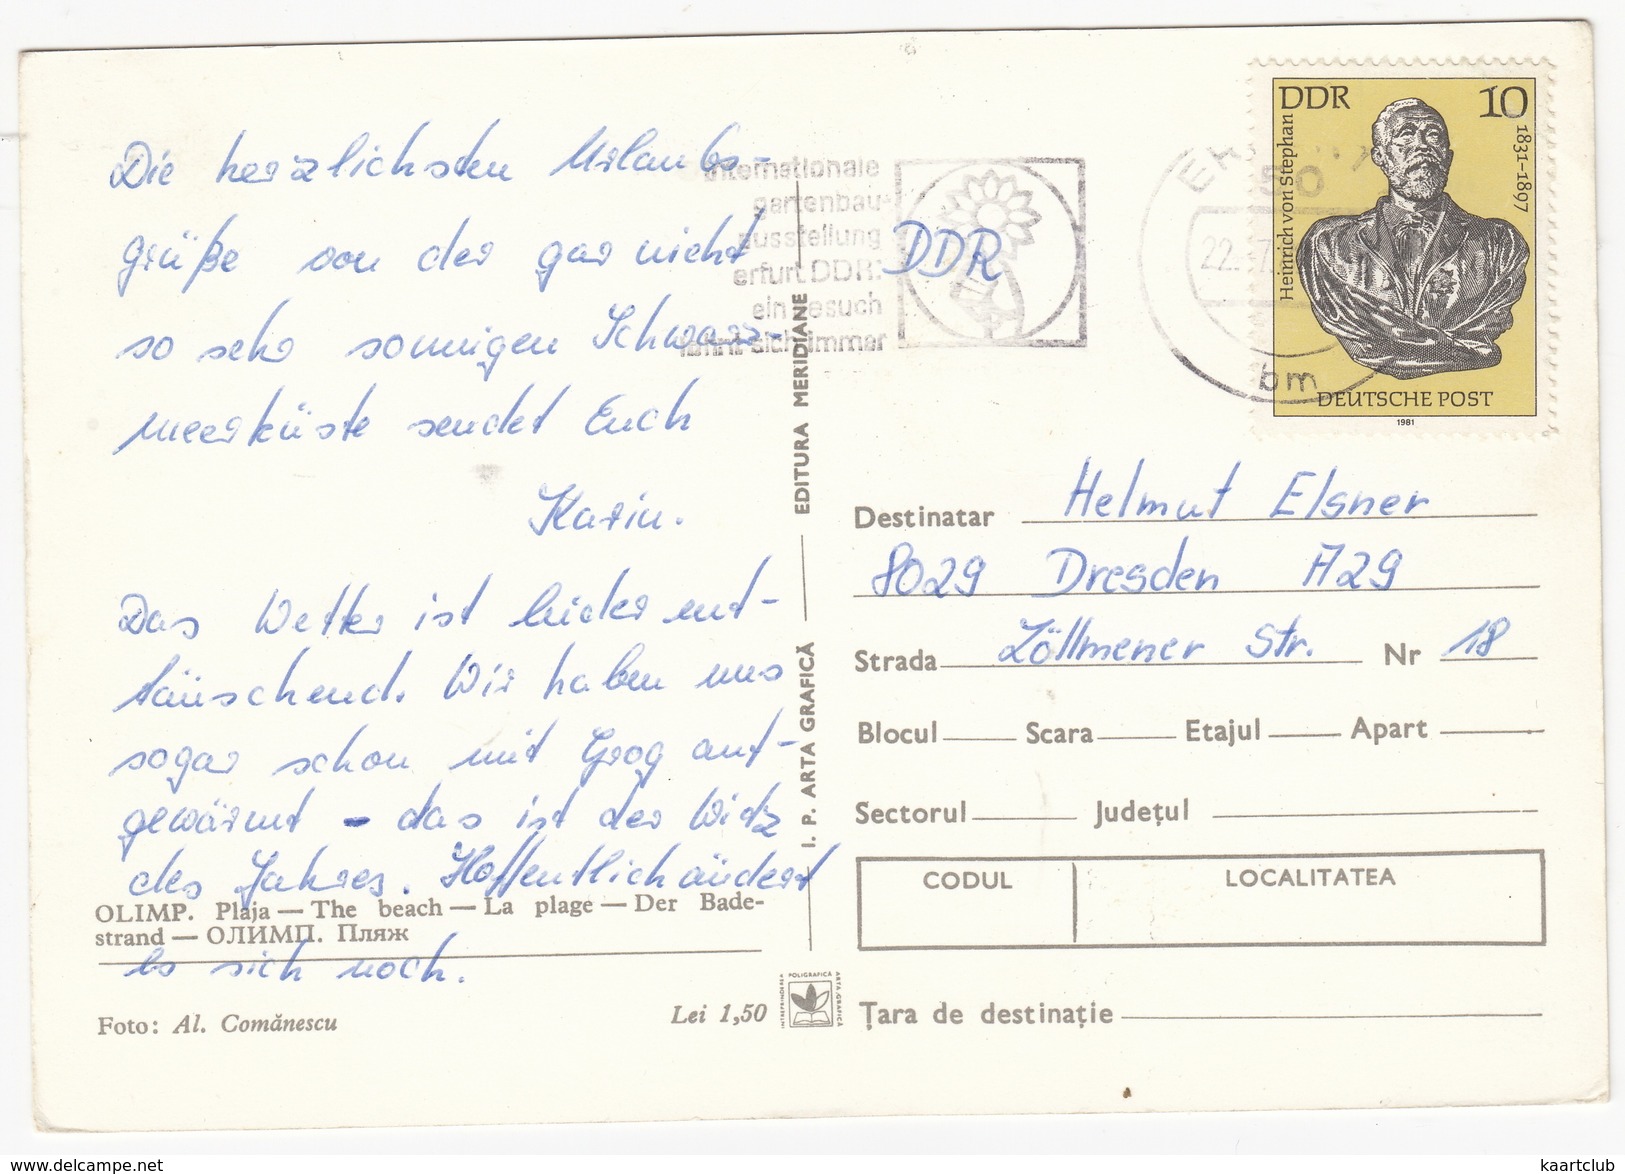 Die herzlichsten Urlaubs-
grüße von der gar nicht
so sehr sonnigen Schwarz-
meerküste sendet Euch
Karin.
Das Wetter ist leider ent-
täuschend. Wir haben uns
sogar schon mit Grog auf-
gewärmt - das ist der Witz
des Jahres. Hoffentlich ändert
es sich noch.
OLIMP. Plaja — The beach — La plage — Der Bade-
strand — ОЛИМП. Пляж
Foto: Al. Comănescu
Lei 1,50
INTREPRINDEREA POLIGRAFICA ARTA GRAFICA
I. P. ARTA GRAFICĂ EDITURA MERIDIANE
internationale
gartenbau-
ausstellung
erfurt DDR:
ein besuch
lohnt sich immer
DDR
50
22. 7.
bm
DDR 10
Heinrich von Stephan
1831-1897
DEUTSCHE POST
1981
Destinatar Helmut Elsner
8029 Dresden A29
Strada Zöllmener Str. Nr 18
Blocul Scara Etajul Apart
Sectorul Județul
CODUL LOCALITATEA
Țara de destinație
https://www.delcampe.net
kaartclub